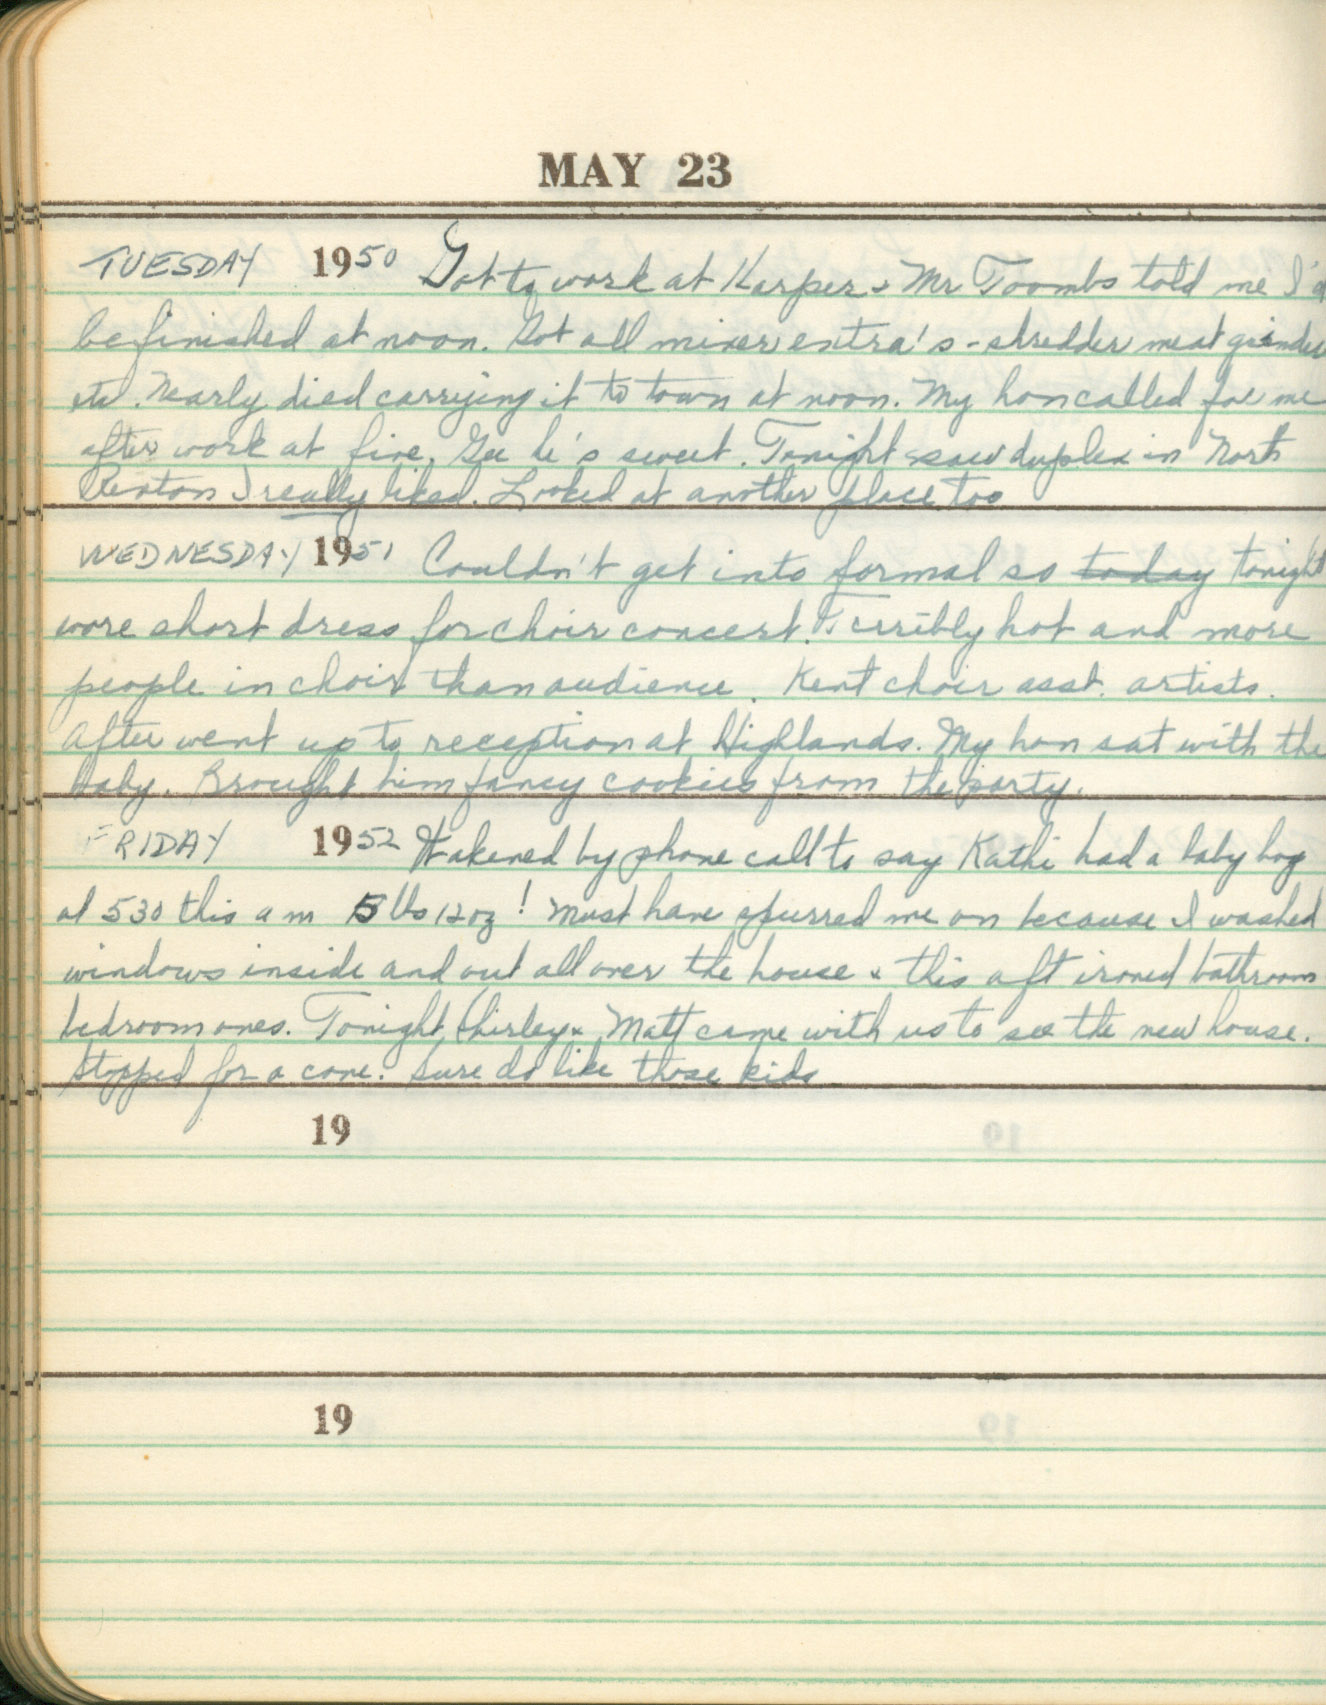 MAY 23
TUESDAY 1950 Got to work at Karpers & Mr Toombs told me I'd
be finished at noon. Got all mixer extra's - shredder meat grinder
etc. Nearly died carrying it to town at noon. My hon called for me
after work at five. Gee he's sweet. Tonight saw duplex in North
Renton I really liked. Looked at another place too
WEDNESDAY 1951 Couldn't get into formal so today tonight
wore short dress for choir concert. Terribly hot and more
people in choir than audience. Kent choir asst. artists.
After went up to reception at Highlands. My hon sat with the
baby. Brought him fancy cookies from the party.
FRIDAY 1952 Wakened by phone call to say Kathi had a baby boy
at 530 this am 5 lbs 12 oz! Must have spurred me on because I washed
windows inside and out all over the house & this aft ironed bathroom
bedroom ones. Tonight Shirley & Matt came with us to see the new house.
Stopped for a cone. Sure do like those kids
19
19